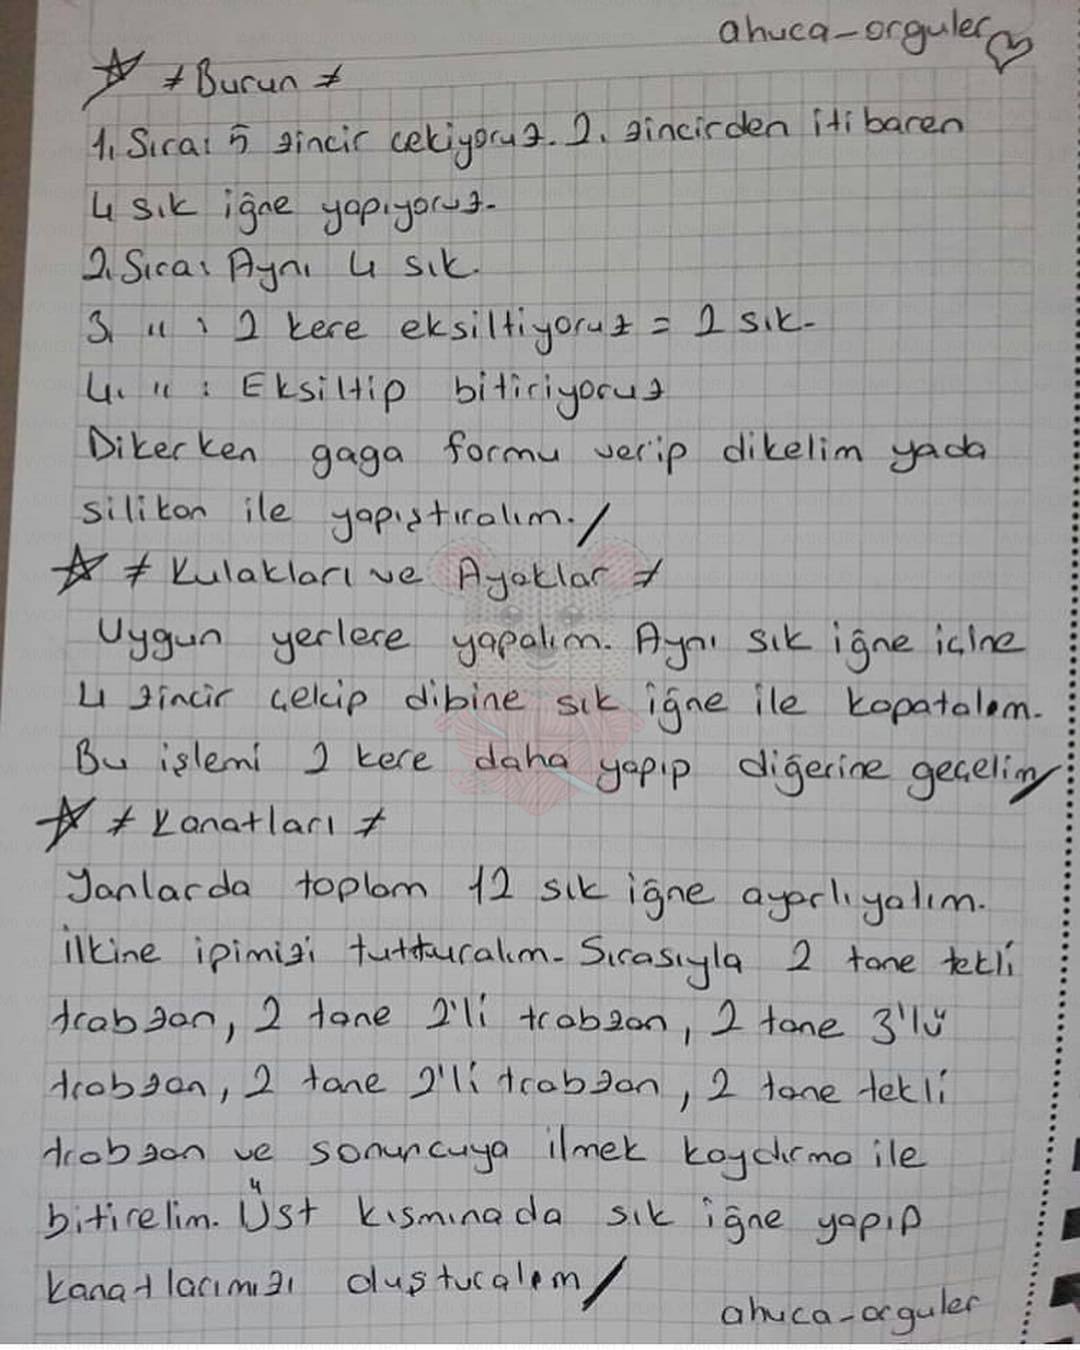 ahuca-orguler
≠ Burun ≠
1. Sıra: 5 zincir çekiyoruz. 2. zincirden itibaren
4 sık iğne yapıyoruz.
2. Sıra: Aynı 4 sık.
3. " : 2 kere eksiltiyoruz = 2 sık.
4. " : Eksiltip bitiriyoruz
Dikerken gaga formu verip dikelim yada
silikon ile yapıştıralım./
≠ Kulakları ve Ayaklar ≠
Uygun yerlere yapalım. Aynı sık iğne içine
4 zincir çekip dibine sık iğne ile kapatalım.
Bu işlemi 2 kere daha yapıp diğerine geçelim/
≠ Kanatları ≠
Yanlarda toplam 12 sık iğne ayarlıyalım.
İlkine ipimizi tutturalım. Sırasıyla 2 tane tekli
trabzan, 2 tane 2'li trabzan, 2 tane 3'lü
trabzan, 2 tane 2'li trabzan, 2 tane tekli
trabzan ve sonuncuya ilmek kaydırma ile
bitirelim. Üst kısmınada sık iğne yapıp
kanatlarımızı oluşturalım/
ahuca-orguler